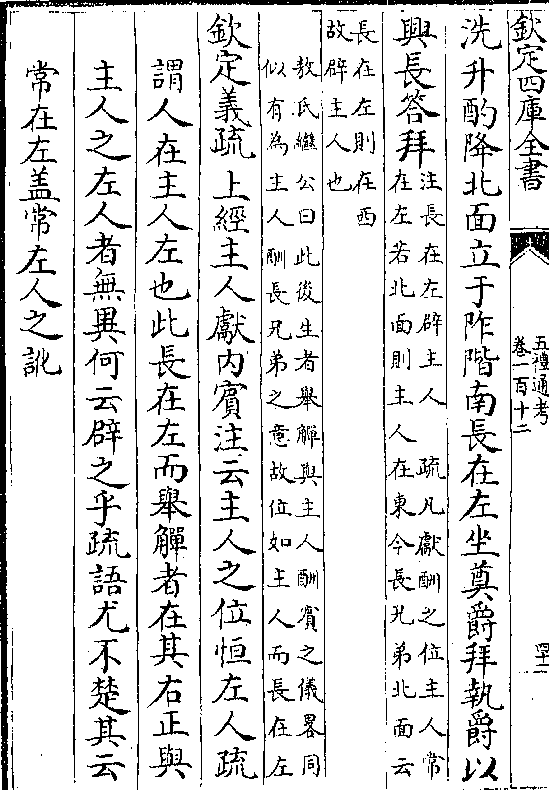 欽定四庫全書
五禮通考
卷一百十二
四十一
洗升酌降北面立于阼階南長在左坐奠爵拜執爵以
興長答拜
注長在左辟主人　疏凡獻酬之位主人常
在左若北面則主人在東今長兄弟北面云
長在左則在西
故辟主人也
敖氏繼公曰此後生者舉觶與主人酬賓之儀畧同
似有為主人酬長兄弟之意故位如主人而長在左
欽定義疏上經主人獻内賓注云主人之位恒左人疏
謂人在主人左也此長在左而舉觶者在其右正與
主人之左人者無異何云辟之乎疏語尤不楚其云
常在左盖常左人之訛